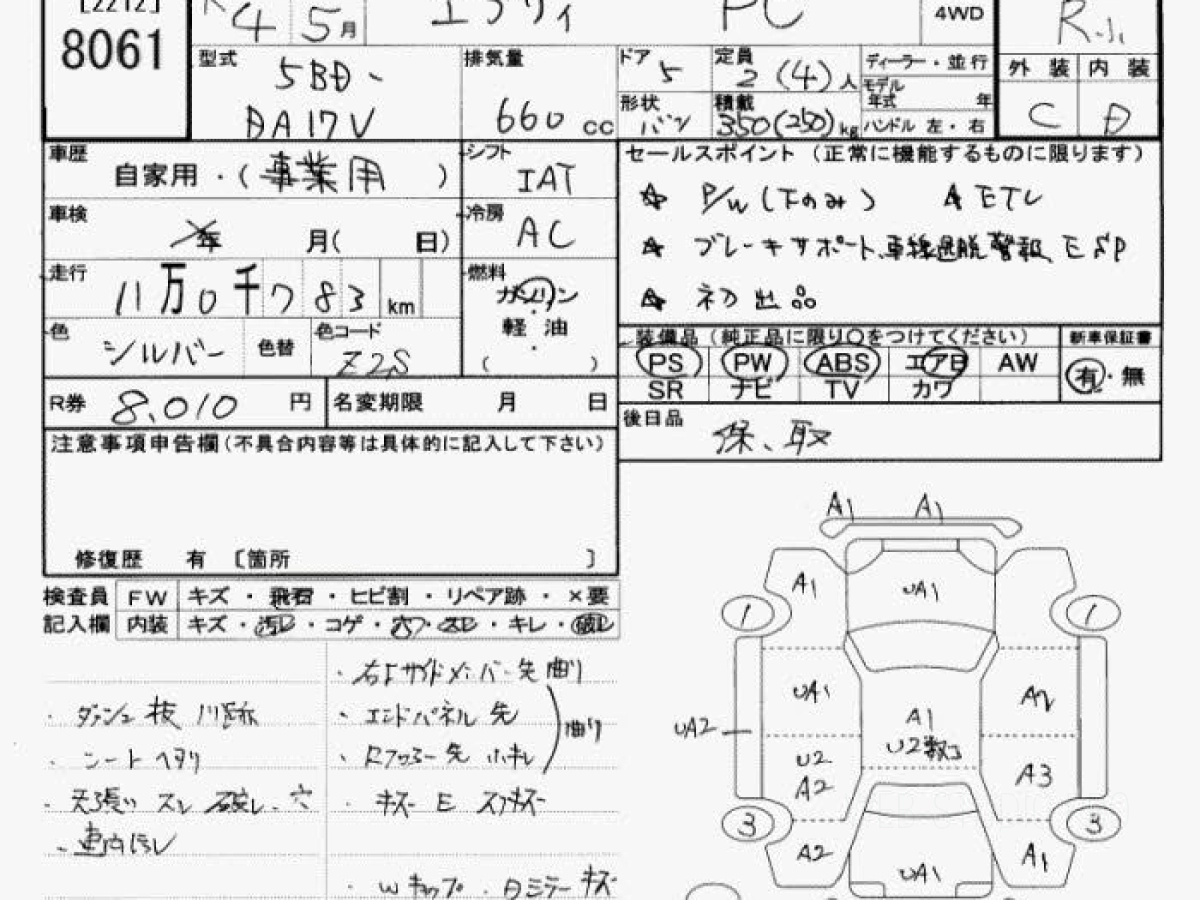 [2212]
8061
R 4 5月
エブリイ PC
4WD
R.小
型式 5BD-
DA17V
排気量 660 cc
ドア 5
定員 2 (4) 人
形状 バン
積載 350(250) kg
ディーラー・並行
モデル年式 年
ハンドル 左・右
外装 内装
C D
車歴 自家用・(事業用)
シフト IAT
車検 年 月( 日)
冷房 AC
走行 11万0千783 km
燃料 ガソリン
軽油
( )
色 シルバー 色替 色コード Z2S
R券 8,010 円 名変期限 月 日
セールスポイント(正常に機能するものに限ります)
P/W(下のみ) ETC
ブレーキサポート、車線逸脱警報、ESP
初出品
装備品(純正品に限り○をつけてください) 新車保証書
PS PW ABS エアB AW 有・無
SR ナビ TV カワ
後日品 保、取
注意事項申告欄(不具合内容等は具体的に記入して下さい)
修復歴 有 〔箇所 〕
検査員 FW キズ・飛石・ヒビ割・リペア跡・×要
記入欄 内装 キズ・汚レ・コゲ・穴・スレ・キレ・破レ
・ダッシュ板 ノリ跡
・シートヘタリ
・天張り スレ 破レ、穴
・車内汚レ
・エンドパネル先
曲り
・Rフロアー先 小キレ
・Wキャップ・
キズ
A1 A1
A1 UA1
1 1
UA1 A2
A1
UA2 U2数コ
U2
A2 A3
3 3
A2 UA1 A1